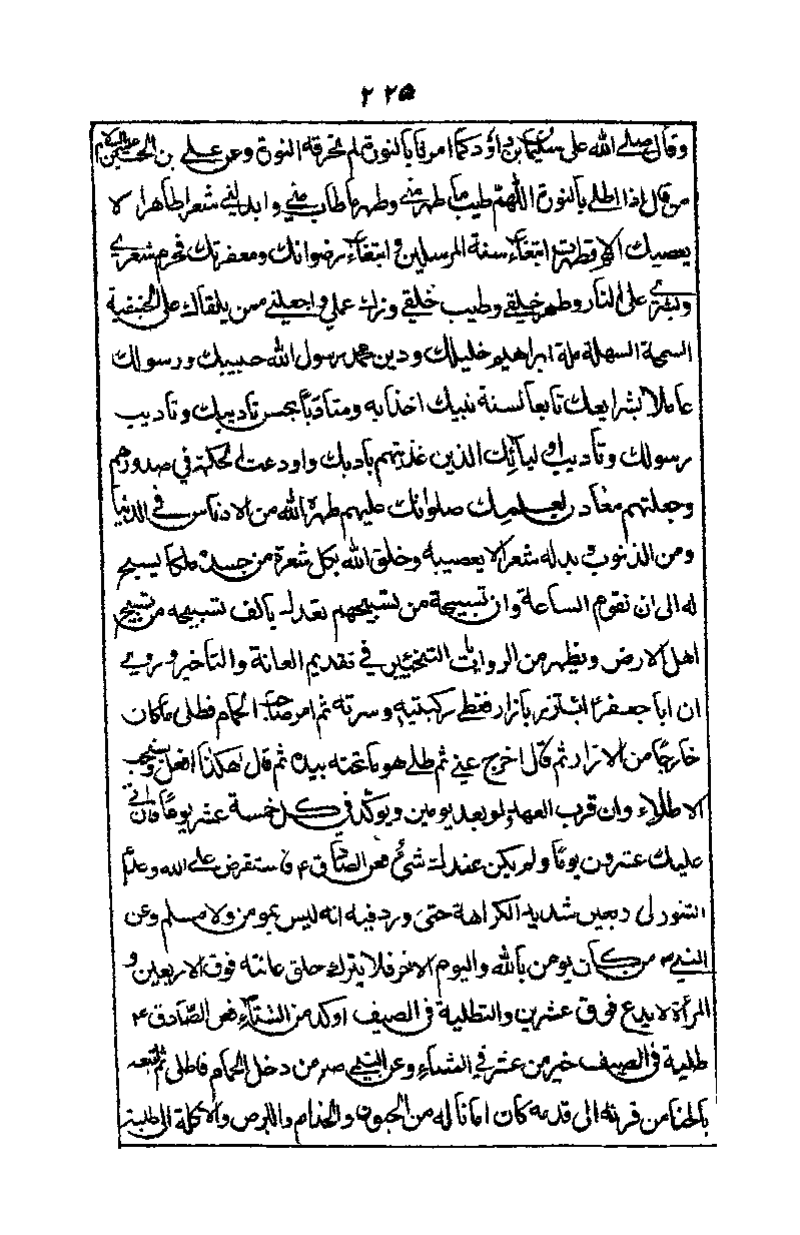 ٢٢٥
وقال صلى الله على سليمان بن داود كما امرنا بالنورة لم تحرقه النورة وعن علي بن الحسين عليه السلام
من قال اذا اطلى بالنورة اللهم طيب ما طهر مني وطهر ما طاب مني وابدلني شعرا طاهرا لا
يعصيك اللهم اني تطهرت ابتغاء سنة المرسلين وابتغاء رضوانك ومغفرتك فحرم شعري
وبشري على النار وطهر خلقي وطيب خلقي وزك عملي واجعلني ممن يلقاك على الحنيفية
السمحة السهلة ملة ابراهيم خليلك ودين محمد رسول الله حبيبك ورسولك
عاملا بشرايعك تابعا لسنة نبيك اخذا به ومتأدبا بحسن تأديبك وتأديب
رسولك وتأديب اوليائك الذين غذوتهم بادبك واودعت الحكمة في صدورهم
وجعلتهم معادن لعلمك صلواتك عليهم طهره الله من الادناس في الدنيا
ومن الذنوب بدله شعرا لا يعصيه وخلق الله بكل شعرة من جسده ملكا يسبح
له الى ان تقوم الساعة وان تسبيحة من تسبيحهم تعدل بالف تسبيحه من تسبيح
اهل الارض ويظهر من الروايات التخيير في تقديم العانة والتأخير وروي
ان ابا جعفر اتزر بازار فغطى ركبتيه وسرته ثم امر صاحب الحمام فطلى ما كان
خارجا من الازار ثم قال اخرج عني ثم طلى هو ما تحته بيده ثم قال هكذا افعل ويستحب
الاطلاء وان قرب العهد ولو بعد يومين ويوكد في كل خمسة عشر يوما فان اتى
عليك عشرون يوما ولم يكن عندك شيء فعن الصادق ع فاستقرض على الله وعلى
التنور لي دبعين شديد الكراهة حتى ورد فيه انه ليس بمومن ولا مسلم وعن
النبي ص من كان يومن بالله واليوم الاخر فلا يترك حلق عانته فوق الاربعين و
المرأة لا يدع فوق عشرين والتطلية في الصيف اوكد من الشتاء فعن الصادق ع
طلية في الصيف خير من عشر في الشتاء وعن النبي ص من دخل الحمام فاطلى ثم اتبعه
بالحنا من قرنه الى قدمه كان امانا له من الجنون والجذام والبرص والاكلة الى طلية